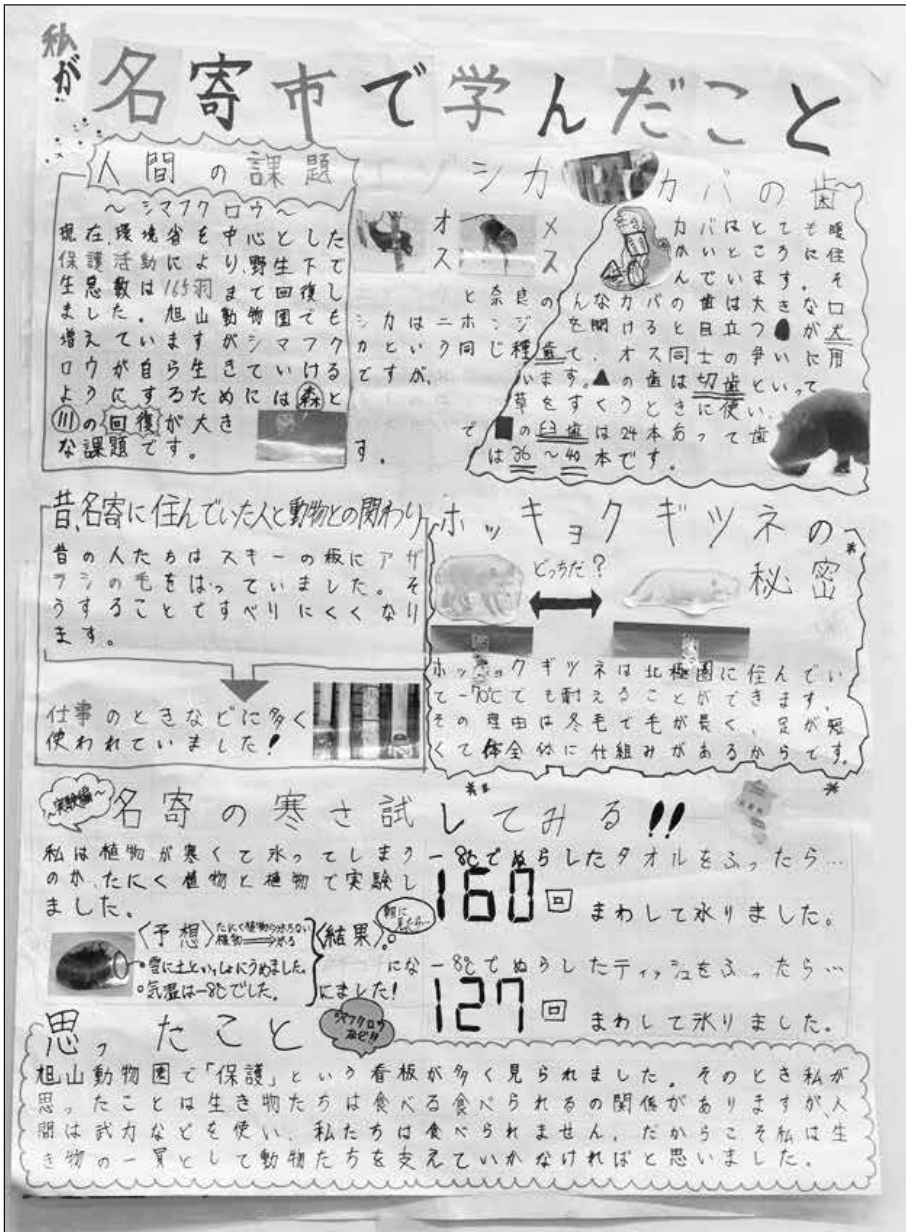 私が
名寄市で学んだこと
人間の課題
～シマフクロウ～
現在、環境省を中心とした
保護活動により、野生下で
生息数は165羽まで回復し
ました。旭山動物園でも
増えていますがシマフク
ロウが自ら生きていける
ようにするためには森と
川の回復が大き
な課題です。
ゾシカ
オス
メス
と奈良の
シカはニホンジ
カという同じ種
ですが、
で
す。
カバの歯
カバはとても暖
かいところに住
んでいます。そ
んなカバの歯は大きな口
を開けると目立つ●が犬
歯で、オス同士の争いに用
います。▲の歯は切歯といって
草をすくうときに使い、
■の臼歯は24本あって歯
は36～40本です。
昔、名寄に住んでいた人と動物との関わり
昔の人たちはスキーの板にアザ
ラシの毛をはっていました。そ
うすることですべりにくくなり
ます。
仕事のときなどに多く
使われていました!
ホッキョクギツネの
秘密
どっちだ?
ホッキョクギツネは北極圏に住んでい
て-70℃でも耐えることができます。
その理由は冬毛で毛が長く、足が短
くて体全体に仕組みがあるからです。
～実験編～
名寄の寒さ試してみる!!
私は植物が寒くて氷ってしまう
のか、たにく植物と植物で実験し
ました。
〈予想〉
たにく植物→氷らない
植物→氷る
○雪に土といっしょにうめました。
○気温は-8℃でした。
〈結果〉
朝に見たら…
にな
にました!
-8℃でぬらしたタオルをふったら…
160回 まわして氷りました。
-8℃でぬらしたティッシュをふったら…
127回 まわして氷りました。
思ったこと
シマフクロウなど!!
旭山動物園で「保護」という看板が多く見られました。そのとき私が
思ったことは生き物たちは食べる食べられるの関係がありますが、人
間は武力などを使い、私たちは食べられません。だからこそ私は生
き物の一員として動物たちを支えていかなければと思いました。